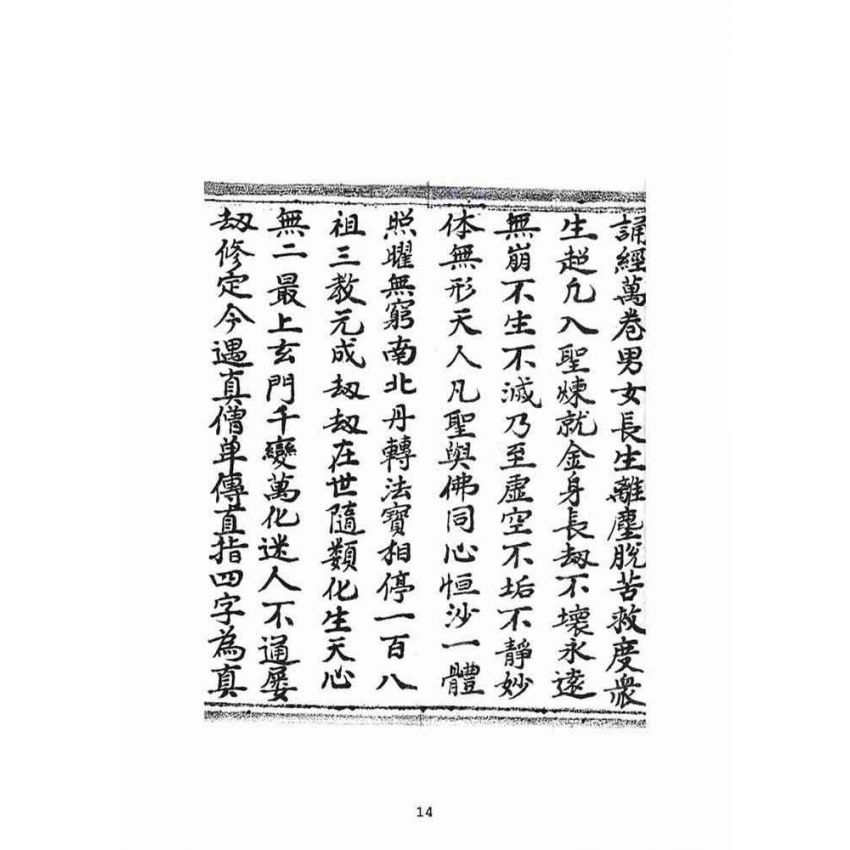 誦經萬卷男女長生離塵脫苦救度衆
生超凢入聖煉就金身長刼不壞永遠
無崩不生不滅乃至虛空不垢不靜妙
体無形天人凡聖與佛同心恒沙一體
照耀無窮南北丹轉法寶相停一百八
祖三教元成刼刼在世隨類化生天心
無二最上玄門千變萬化迷人不通屢
刼修定今遇真僧单傳直指四字為真
14